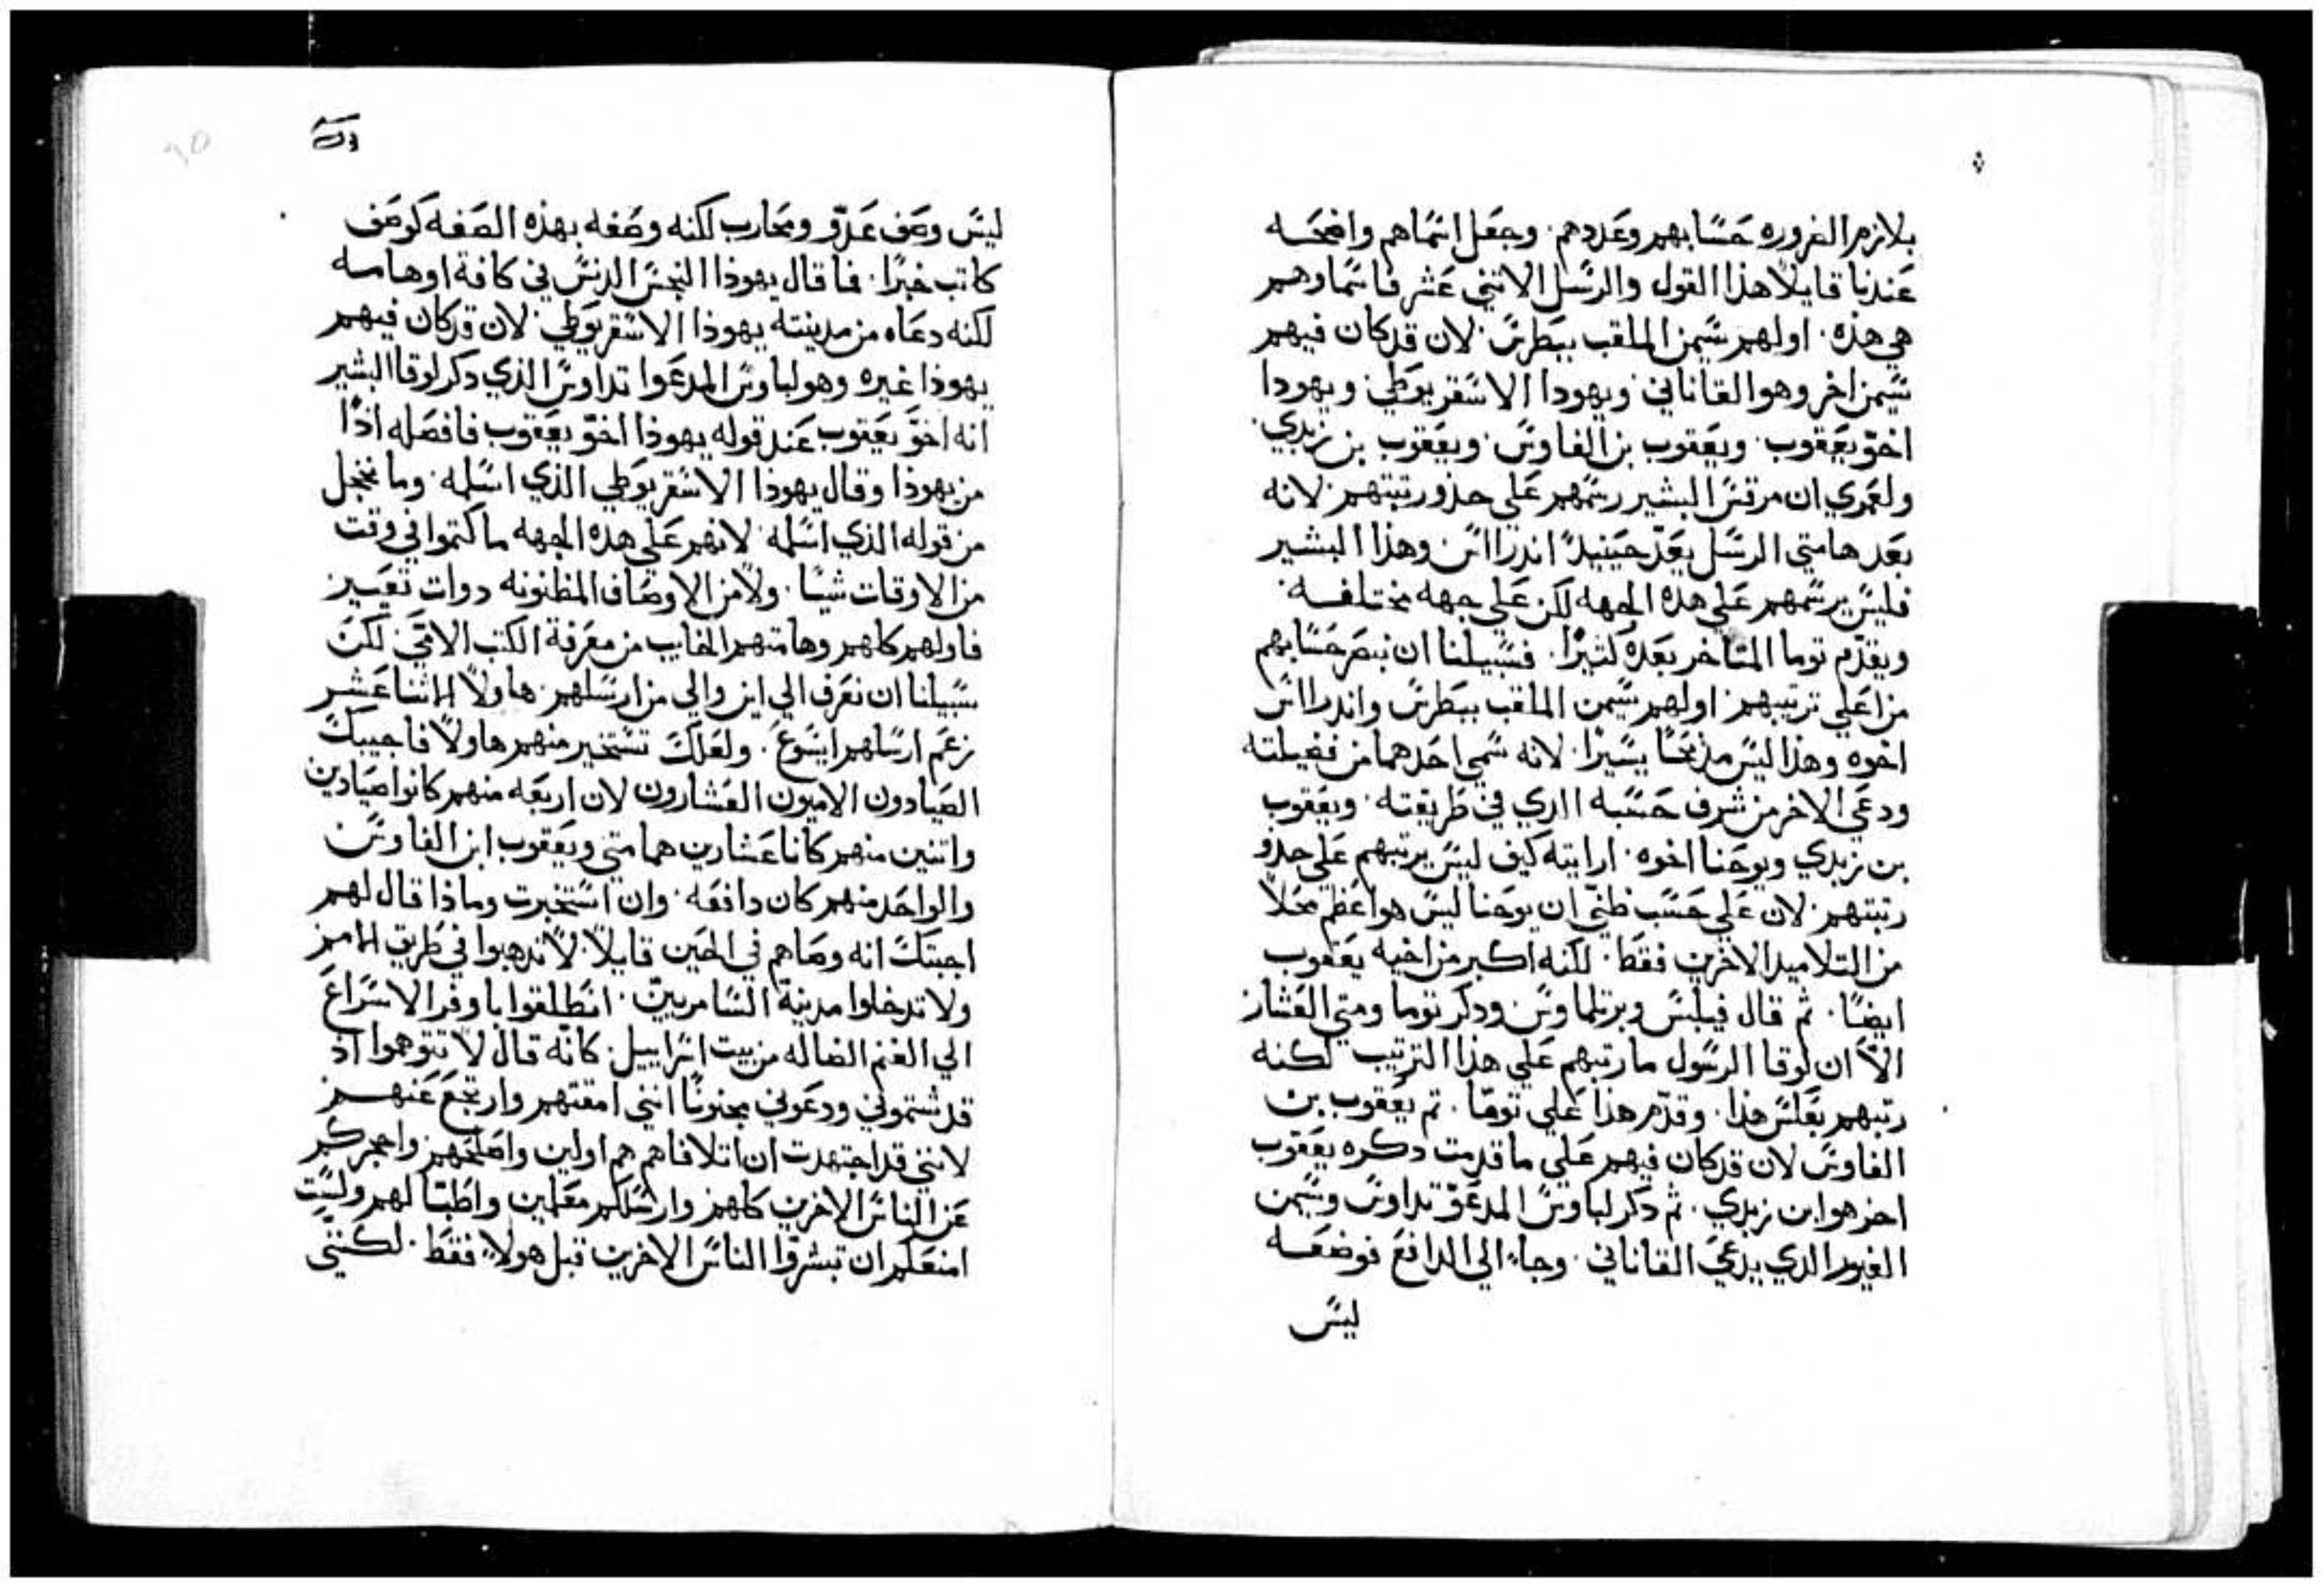 بلازم الضروره حسابهم وعددهم. وجعل اسماهم واضحه
عندنا قايلاً هذا القول والرسل الاتني عشر فاسماوهم
هي هذه. اولهم سيمن الملقب ببطرس. لان قد كان فيهم
سيمن اخر وهوا القاناني ويهودا الاسقريوطي ويهودا
اخو يعقوب. ويعقوب بن الفاوس ويعقوب بن زبدي.
ولعمري ان مرقس البشير رسمهم علي حذو رتبتهم لانه
بعد هامتي الرسل يعد حينيدً اندرااس وهذا البشير
فليس يرسمهم علي هذه الجهه لكن علي جهه مختلفه.
ويقدم توما المتاخر بعده كتيرًا. فسبيلنا ان نبصر حسابهم
من اعلي ترتيبهم. اولهم سيمن الملقب ببطرس واندرااس
اخوه وهذا ليس مديحًا يسيرًا. لانه سمي احدهما من فضيلته
ودعي الاخر من شرف حسبه الدي في طريقته. ويعقوب
بن زبدي ويوحنا اخوه. ارايته كيف ليس يرتبهم علي حذو
رتبتهم. لان علي حسب ظني ان يوحنا ليس هوا عظم محلاً
من التلاميد الاخرين فقط. لكنه اكبر من اخيه يعقوب
ايضًا. ثم قال فيلبس وبرتلماوس ودكر توما ومتي العشار
الا ان لوقا الرسول ما رتبهم علي هذا الترتيب لكنه
رتبهم بعكس هذا. وقدم هذا علي توما. تم يعقوب بن
الفاوس لان قد كان فيهم علي ما قدمت دكره يعقوب
اخر هوا بن زبدي. ثم دكر لباوس المدعو تداوس وسيمن
الغيور الدي يدعي القاناني. وجاء الي الدافع فوضعه
ليس
ليس وصف عدو ومحارب لكنه وصفه بهذه الصفه كوصف
كاتب خبرًا. فما قال يهوذا النجس الدنس في كافة اوهامه
لكنه دعاه من مدينته يهوذا الاسقريوطي. لان قد كان فيهم
يهوذا غيره وهو لباوس المدعوا تداوس الذي دكر لوقا البشير
انه اخو يعقوب عند قوله يهوذا اخو يعقوب فافصله اذًا
من يهوذا وقال يهوذا الاسقريوطي الذي اسلمه. وما نخجل
من قوله الذي اسلمه. لانهم علي هذه الجهه ما كتموا في وقت
من الاوقات شيًا. ولا من الاوصاف المظنونه دوات تعيير
فاولهم كلهم وهامتهم الخايب من معرفة الكتب الامي لكن
سبيلنا ان نعرف الي اين والي من ارسلهم. هاولاً الاتنا عشر
زعم ارسلهم ايسوع. ولعلك تستخير منهم هاولاً فاجيبك
الصيادون الاميون العشارون لان اربعه منهم كانوا صيادين
واتنين منهم كانا عشارين هما متي ويعقوب ابن الفاوس
والواحد منهم كان دافعه. وان استخبرت وماذا قال لهم
اجبتك انه وصاهم في الحين قايلاً. لا تدهبوا في طريق الامم
ولا تدخلوا مدينة السامريين. انطلقوا باوفر الاسراع
الي الغنم الضاله من بيت اسراييل. كانه قال لا تتوهموا اذ
قد شتموني ودعوني مجنونًا انني امقتهم وارتجع عنهم
لانني قد اجتهدت ان اتلافاهم هم اولين واصلحهم واحجركم
عن الناس الاخرين كلهم وارسلكم معلمين واطبا لهم ولست
امنعكم ان تبشروا الناس الاخرين قبل هولاً فقط. لكنني